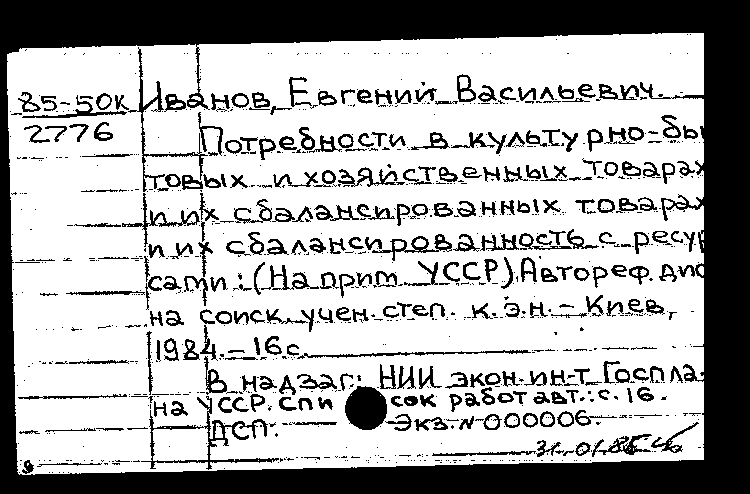 85-50К Иванов, Евгений Васильевич.
2776
Потребности в культурно-бы
товых и хозяйственных товарах
и их сбалансированных товарах
и их сбалансированность с ресур
сами: (На прим. УССР). Автореф. дис
на соиск. учен. степ. к. э.н. – Киев,
1984. – 16 с.
В надзаг: НИИ экон. ин-т Госпла-
на УССР. Список работ авт.: с. 16.
ДСП. Экз. N 000006.
31.01.85